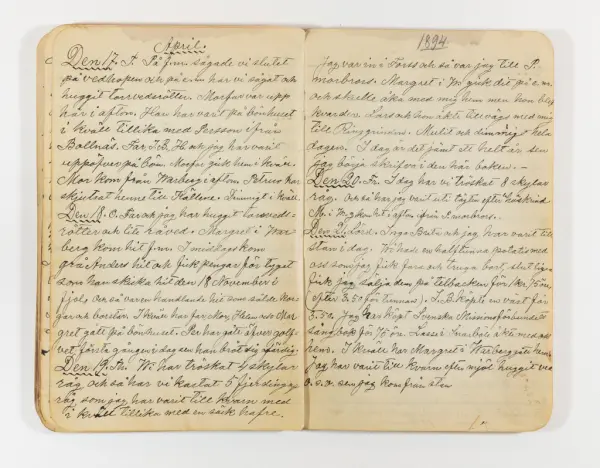 April.
Den 17. T. På f.m. sågade vi slutet
på vedhopen och på e.m. har vi sågat och
huggit torrvedsrötter. Morfar var upp
här i afton. Han har varit på bönhuset
i kväll tillika med Persson ifrån
Bollnäs. Far, L.B. H. och jag har varit
uppöfver på bön. Morfar gick hem i kväll.
Mor kom från Warberg i afton. Petrus har
skjutsat henne till Källene. Dimmigt i kväll.
Den 18. O. Far och jag har huggit torrveds-
rötter och lite råved. Margret i War
berg kom hit f.m. I middags kom
grå Anders hit och fick pengar för tyget
som han skicka hit den 18 November i
fjol, och så var en handlande hit som sålde kor
gar och borstar. I kväll har far, Mor, H. och Mar
gret gått på bönhuset. Per har gått öfver golf-
vet första gången i dag sen han bröt sig
Den 19. Th. Wi har tröskat 4 skylar
råg och så har vi kastat 5 fjerdingar
råg som jag har varit till kvarn med
i kväll tillika med en säck hafre.
1894.
Jag var in i Forss och så var jag till P.
morbrors. Margret i W. gick dit på e.m.
och skulle åka med mig hem men hon blef
kvar der. Lars och hon åkte till vägs med mig
till Ringgrinden. Mulit och dimmigt hela
dagen. I dag är det jämt ett helt år sen
jag börja skrifva i den här boken. —
Den 20. Fr. I dag har vi tröskat 8 skylar
råg. och så har jag varit ute
M. i Wg kom hit i afton ifrån P. morbrors.
Den 21. Lörd. Inga Brita och jag har varit till
stan i dag. Wi hade en half tunna potatis med
oss som jag fick fara och truga bort, slutligen
fick jag sälja dem på tillbacken för 1 kr. 75 öre,
efter 3.50 för tunnan). L.B. köpte en väst för
3.50. Jag har köpt Svenska Missionsförbundets
sångbok för 75 öre. Lasse i åkte med oss
hem. I kväll har Margret i Warberg gått hem,
Jag har varit till kvarn efter mjöl huggit ved
o.s.v. sen jag kom från stan